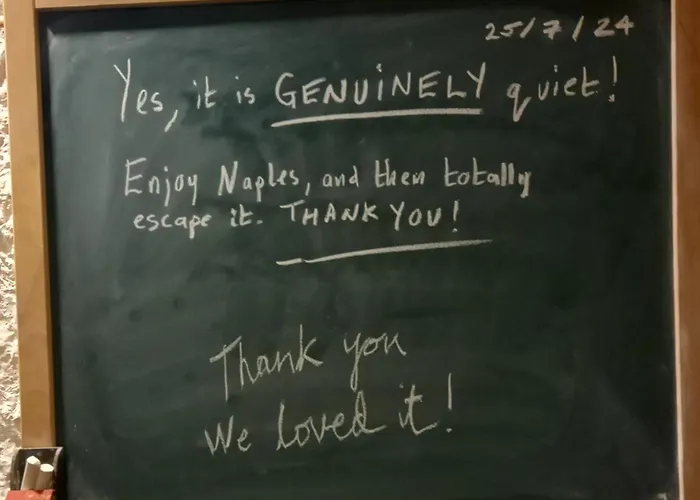 25/7/24
Yes, it is GENUiNELY quiet!
Enjoy Naples, and then totally
escape it. THANK YOU!
Thank you
We loved it!